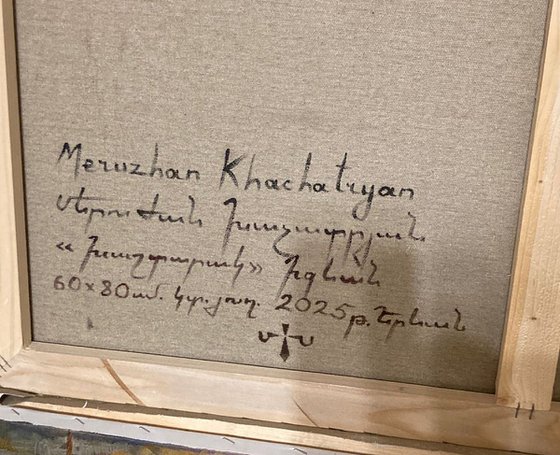 Meruzhan Khachatryan
Մերուժան Խաչատրյան
«Խաչքարակ» Իջևան
60x80սմ. կտ. յուղ. 2025թ. Երևան